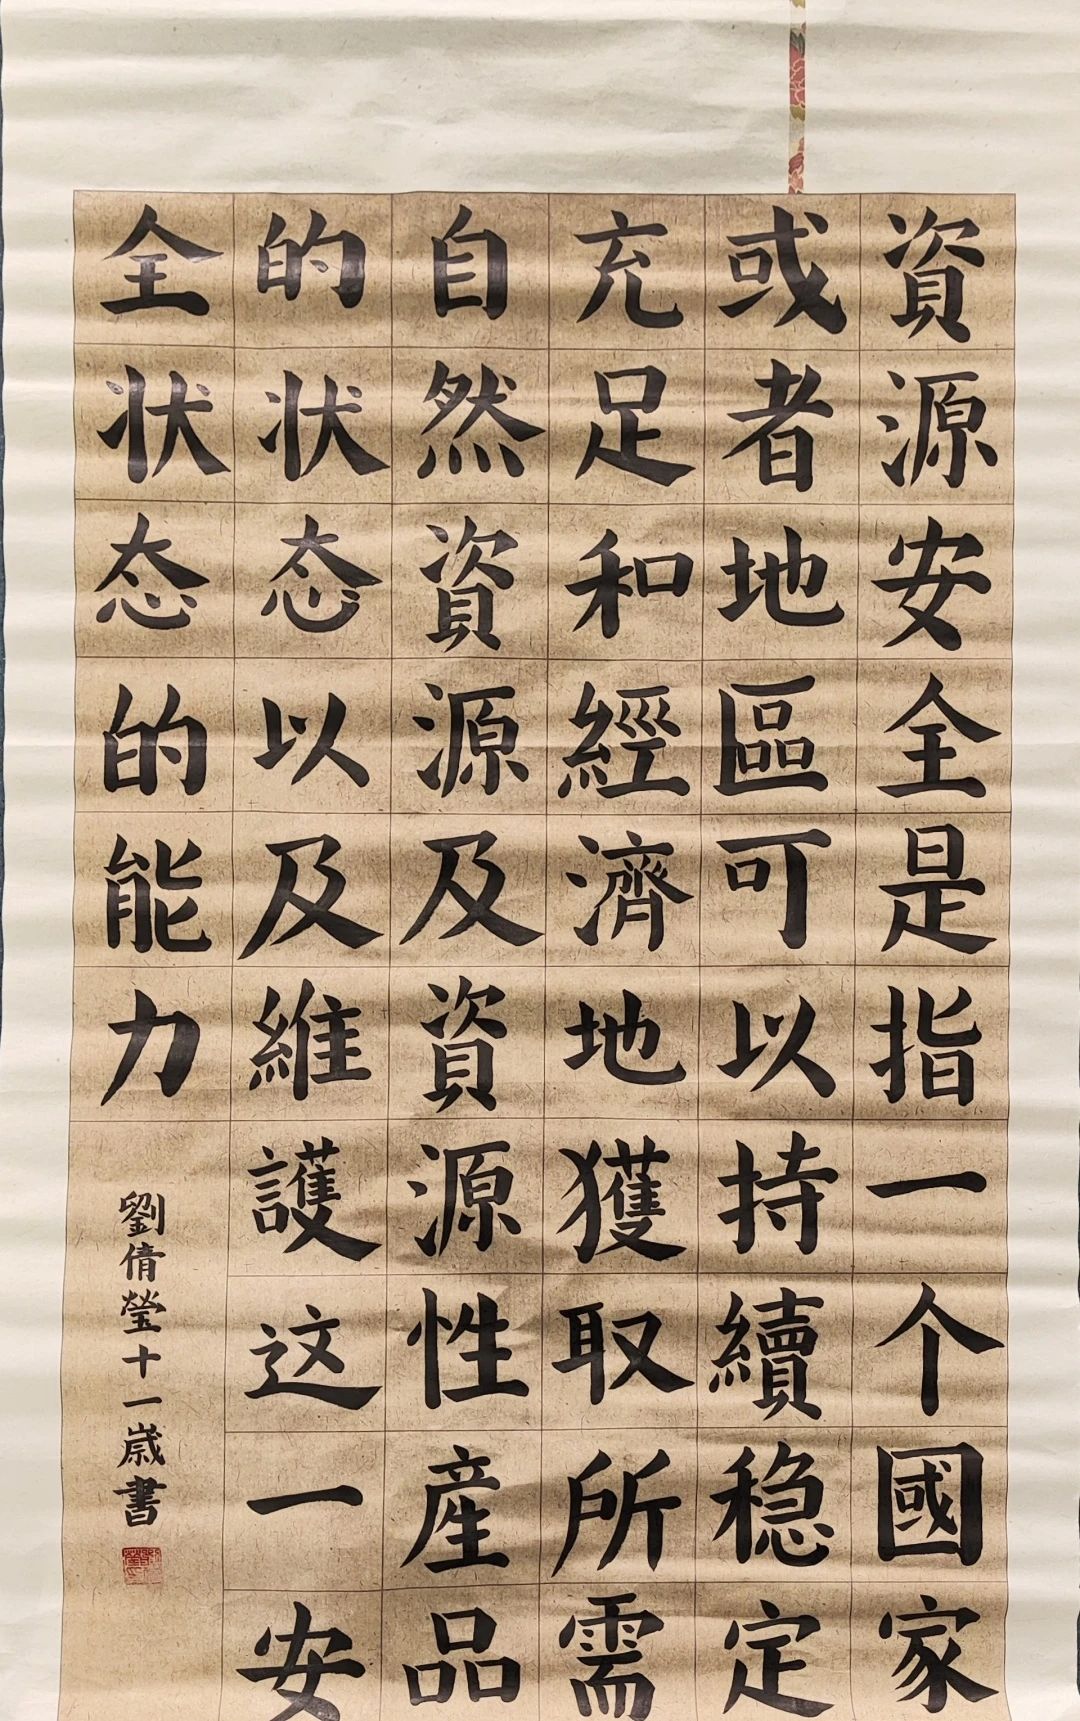 資源安全是指一个國家
或者地區可以持續稳定
充足和經濟地獲取所需
自然資源及資源性産品
的状态以及維護这一安
全状态的能力
劉倩瑩十一歲書